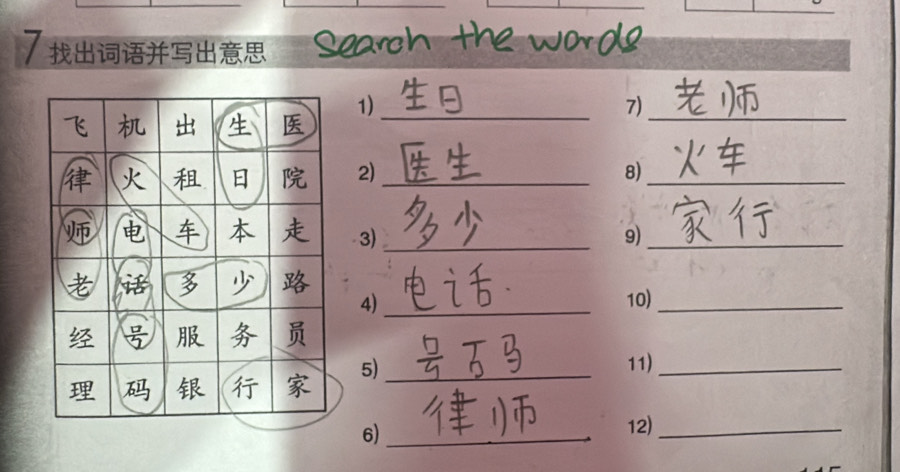 7 找出词语并写出意思 Search the words
飞 机 出 生 医
律 火 租 日 院
师 电 车 本 走
老 话 多 少 路
经 号 服 务 员
理 码 银 行 家
1) 生日
2) 医生
3) 多少
4) 电话
5) 号码
6) 律师
7) 老师
8) 火车
9) 家行
10)
11)
12)